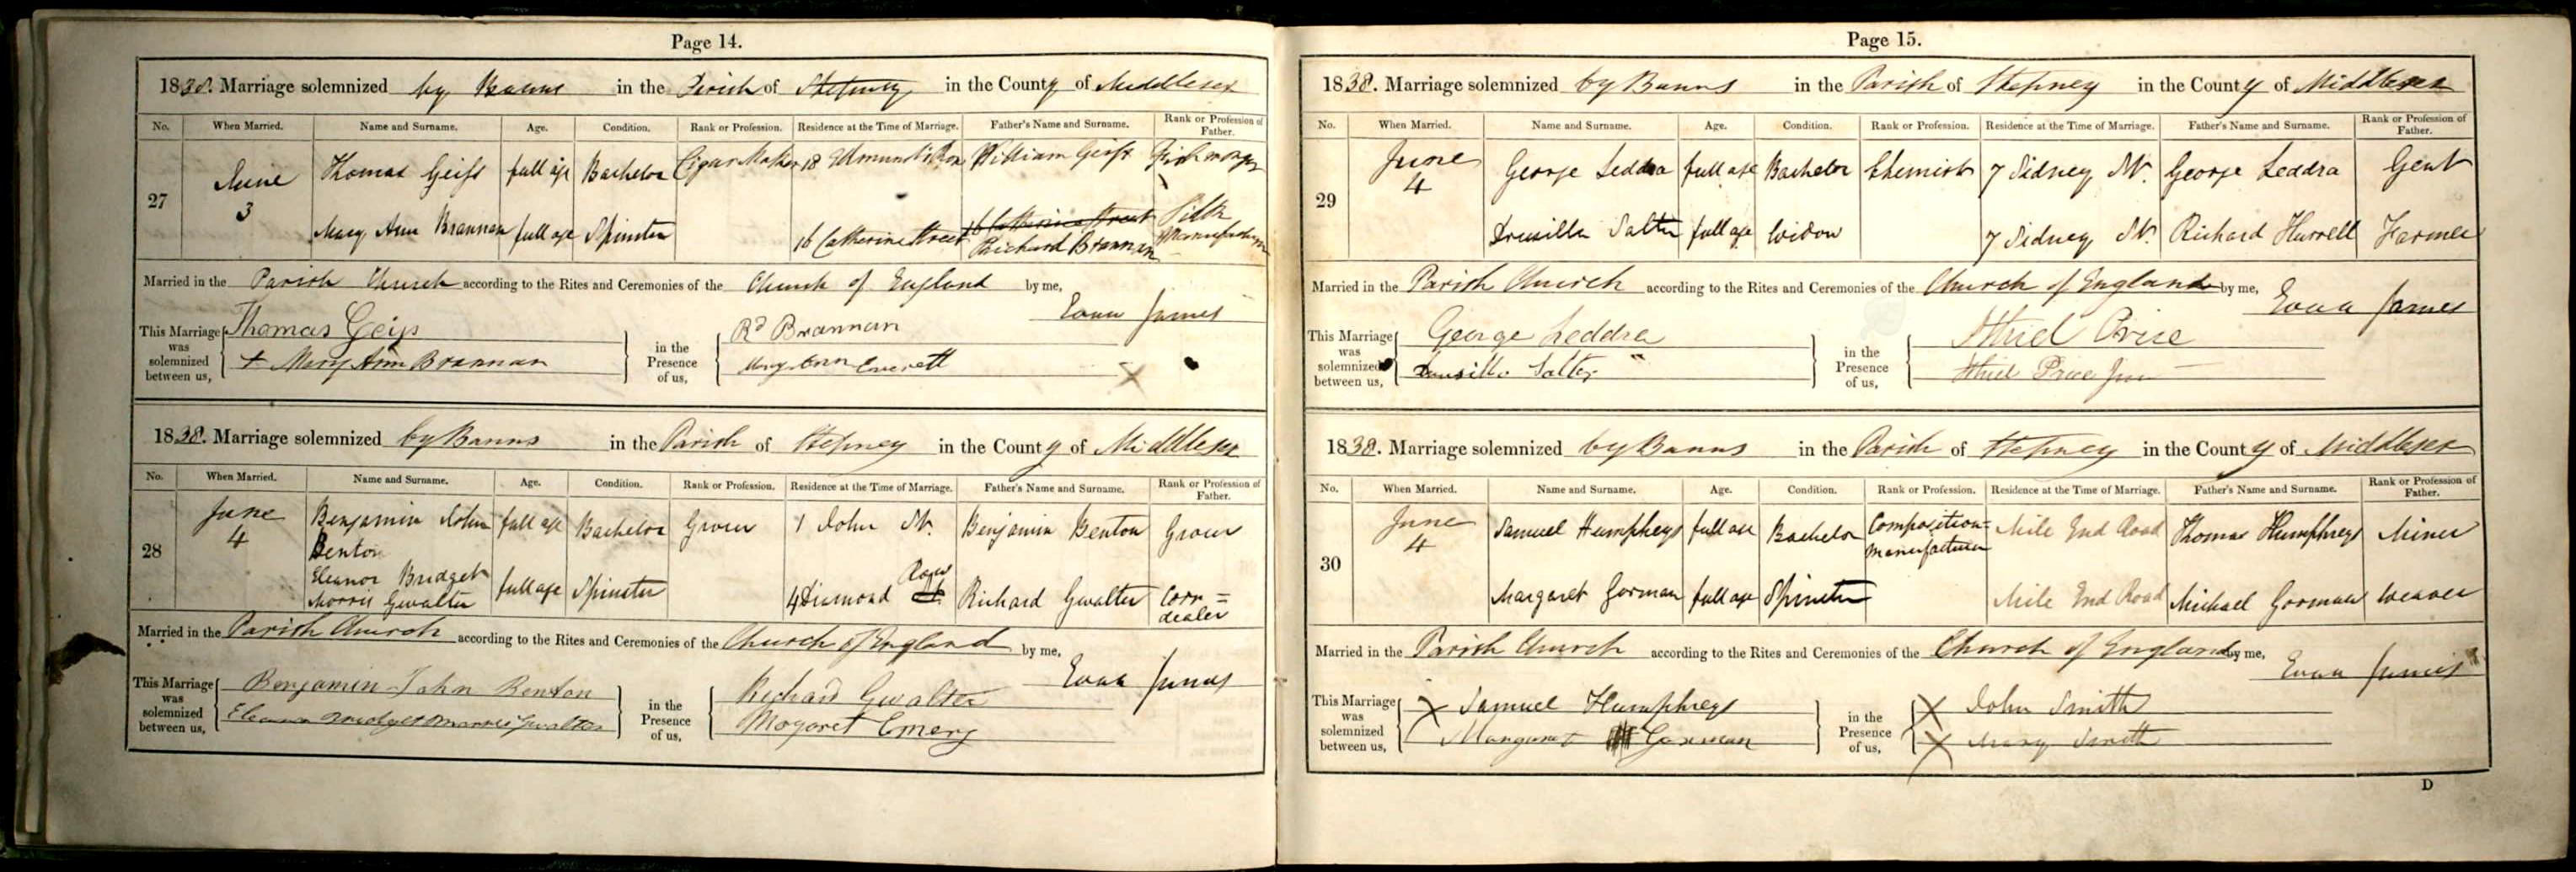 Page 14.
1838. Marriage solemnized by Banns in the Parish of Stepney in the County of Middlesex
No. When Married. Name and Surname. Age. Condition. Rank or Profession. Residence at the Time of Marriage. Father's Name and Surname. Rank or Profession of Father.
27 June 3 Thomas Geiss full age Bachelor Cigar Maker 18 Edmund's William Geiss Fishmonger
Mary Ann Brannan full age Spinster 16 Catherine Street 16 Catherine Street Richard Brannan Silk Manufacturer
Married in the Parish Church according to the Rites and Ceremonies of the Church of England by me,
Evan James
This Marriage was solemnized between us, Thomas Geiss in the Presence of us, Rd Brannan
+ Mary Ann Brannan Mary Ann Everett X
1838. Marriage solemnized by Banns in the Parish of Stepney in the County of Middlesex
No. When Married. Name and Surname. Age. Condition. Rank or Profession. Residence at the Time of Marriage. Father's Name and Surname. Rank or Profession of Father.
28 June 4 Benjamin John Benton full age Bachelor Grocer 1 John St. Benjamin Benton Grocer
Eleanor Bridget Morris Gwalter full age Spinster 4 Diamond Row Richard Gwalter Corn=dealer
Married in the Parish Church according to the Rites and Ceremonies of the Church of England by me,
Evan James
This Marriage was solemnized between us, Benjamin John Benton in the Presence of us, Richard Gwalter
Eleanor Bridget Morris Gwalter Margaret Emery
Page 15.
1838. Marriage solemnized by Banns in the Parish of Stepney in the County of Middlesex
No. When Married. Name and Surname. Age. Condition. Rank or Profession. Residence at the Time of Marriage. Father's Name and Surname. Rank or Profession of Father.
29 June 4 George Leddra full age Bachelor Chemist 7 Sidney St. George Leddra Gent
Drusilla Salter full age Widow 7 Sidney St. Richard Hurrell Farmer
Married in the Parish Church according to the Rites and Ceremonies of the Church of England by me,
Evan James
This Marriage was solemnized between us, George Leddra in the Presence of us, Ithiel Price
Drusilla Salter Ithiel Price Junr
1838. Marriage solemnized by Banns in the Parish of Stepney in the County of Middlesex
No. When Married. Name and Surname. Age. Condition. Rank or Profession. Residence at the Time of Marriage. Father's Name and Surname. Rank or Profession of Father.
30 June 4 Samuel Humphreys full age Bachelor Composition=Manufacturer Mile End Road Thomas Humphreys Miner
Margaret Gorman full age Spinster Mile End Road Michael Gorman Weaver
Married in the Parish Church according to the Rites and Ceremonies of the Church of England by me,
Evan James
This Marriage was solemnized between us, X Samuel Humphreys in the Presence of us, X John Smith
Margaret Gorman X Mary Smith
D